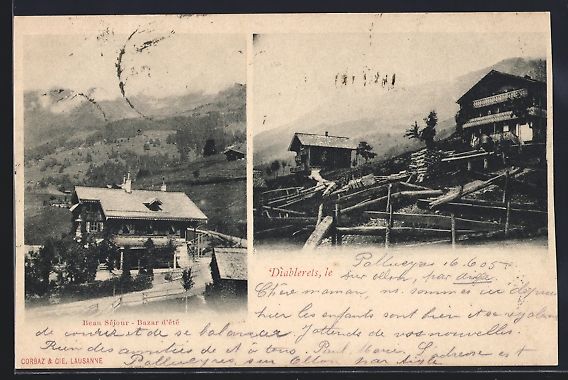 Beau Séjour - Bazar d'été
Diablerets, le
Palleueyres 16.6.05
sur Ollon, par Aigle
Chère maman, ns. sommes ici depuis
hier les enfants sont bien et se régalent
de courir et de se balancer J'attends de vos nouvelles.
Bien des amitiés de à tous. L'adresse est
sur Ollon par Aigle
CORBAZ & CIE, LAUSANNE